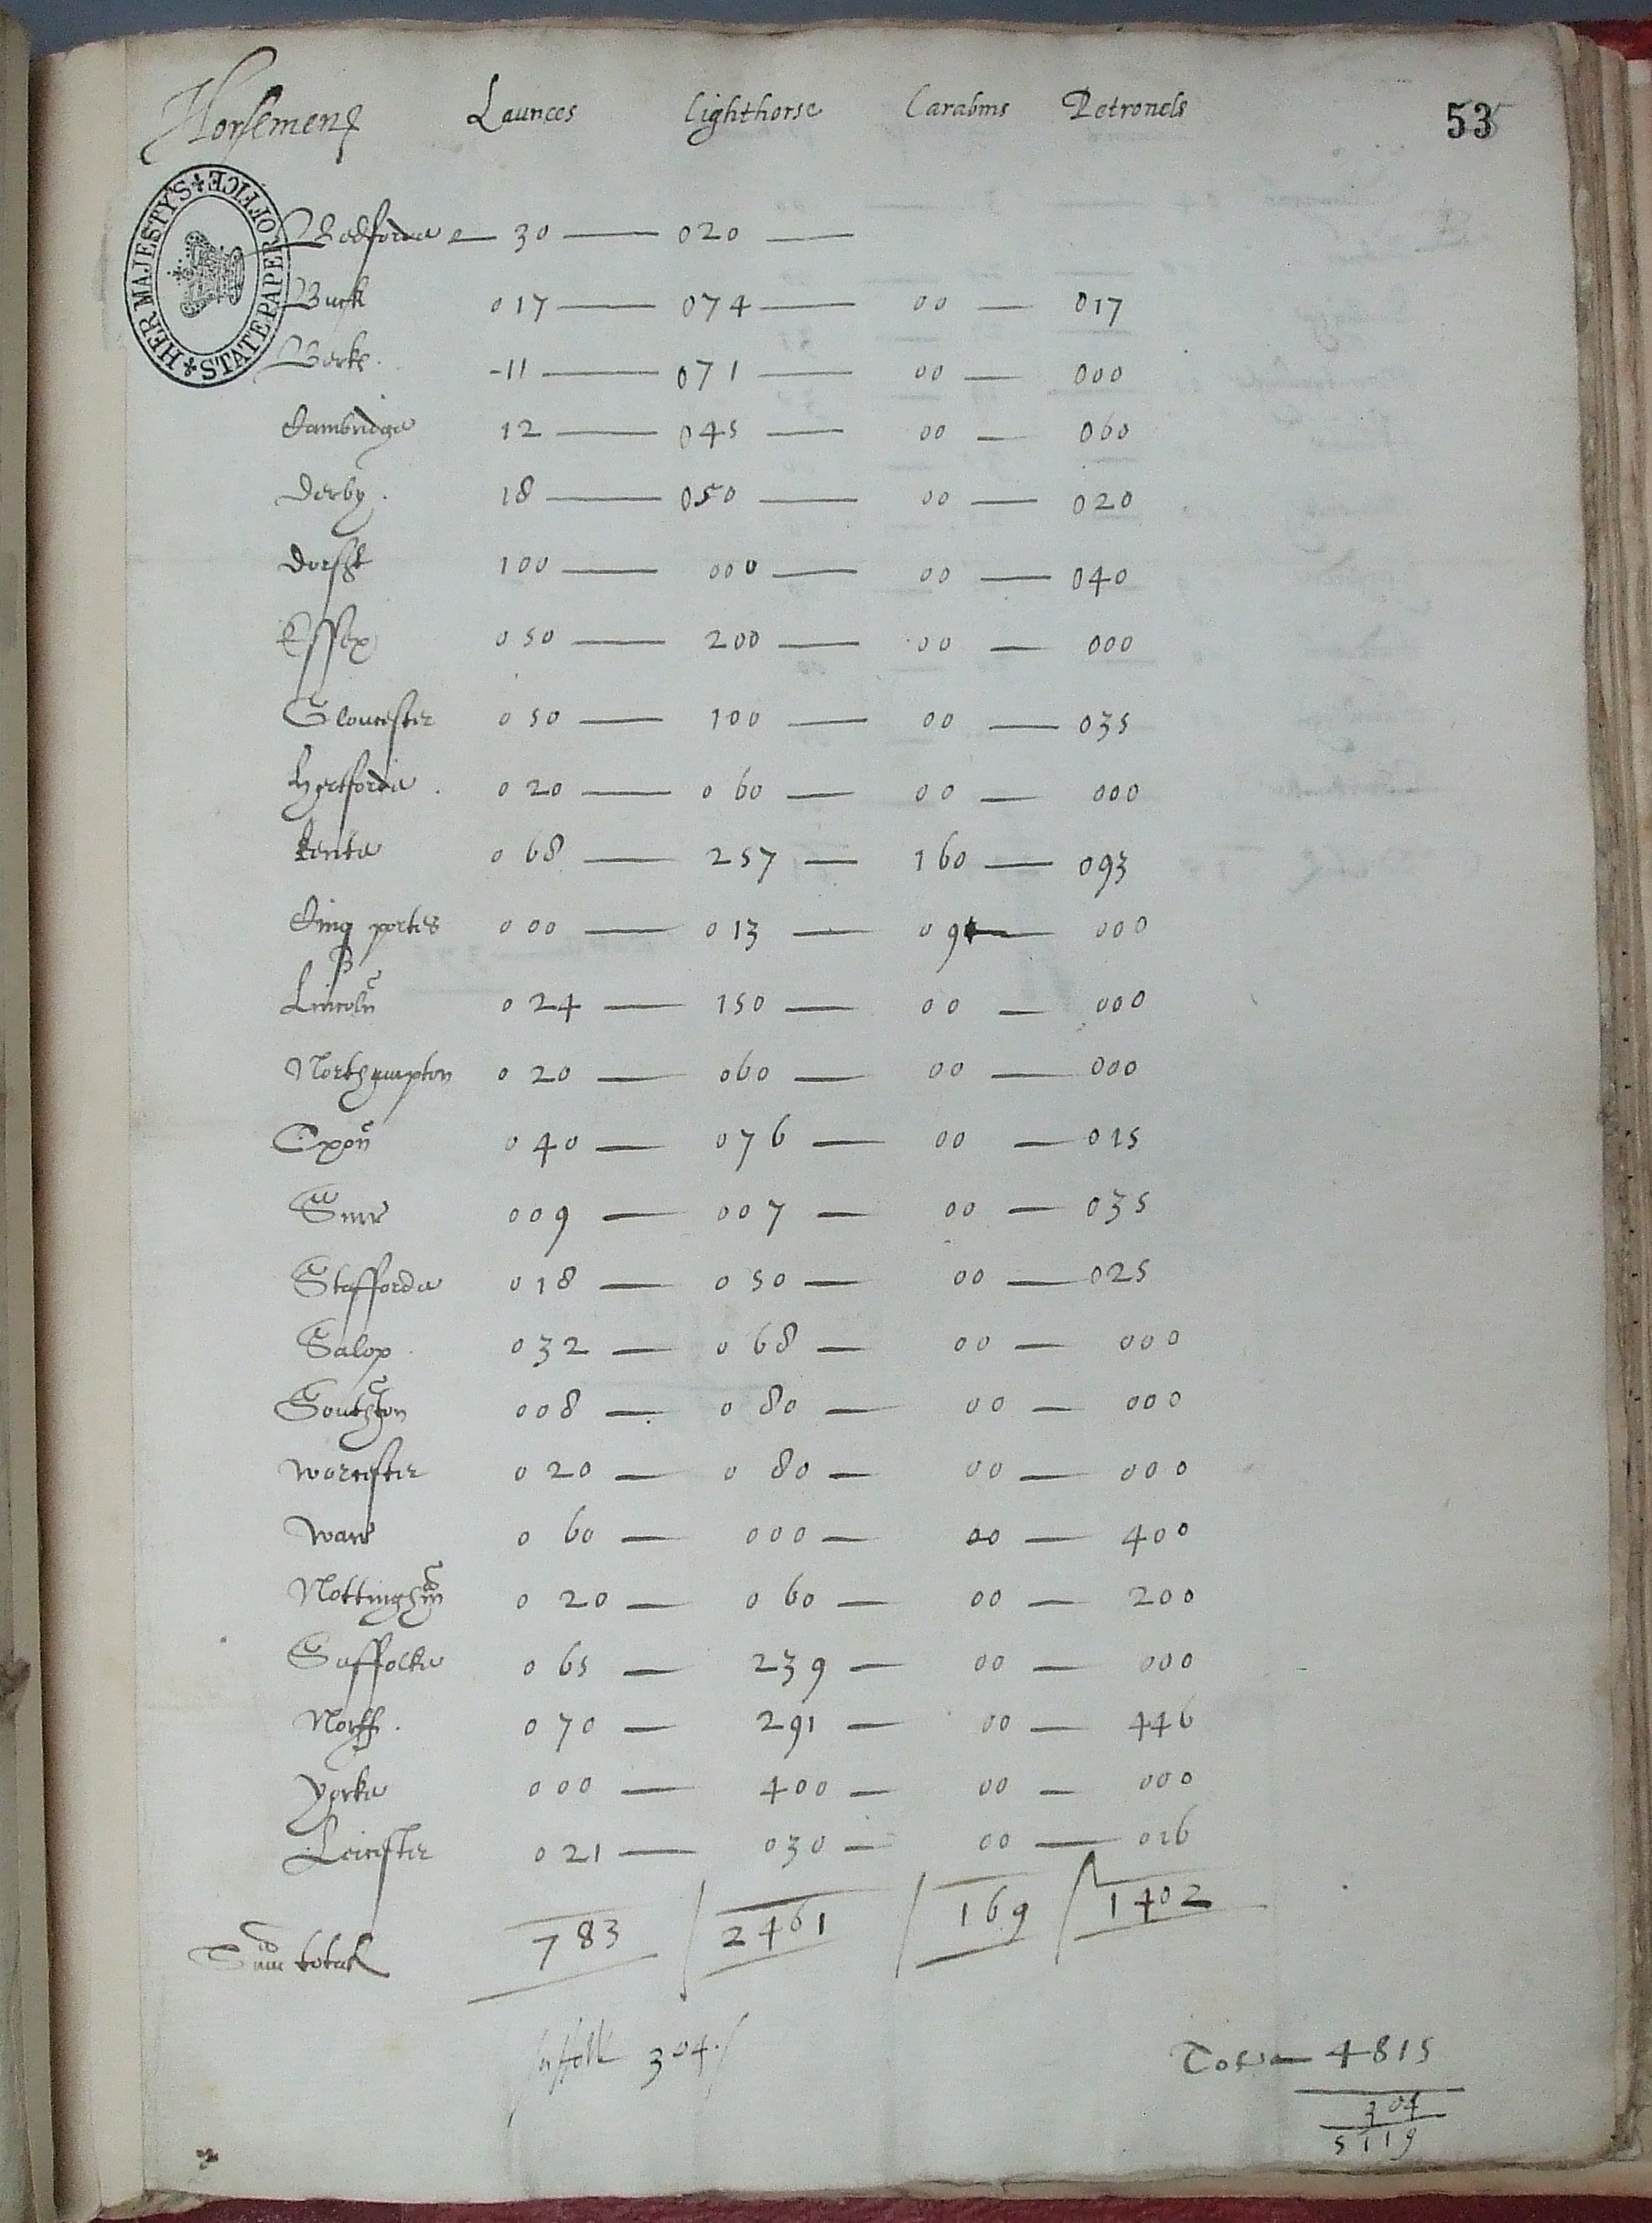 Horsemen Launces lighthorse Carabins Petronels 53
HER MAJESTY'S STATE PAPER OFFICE
Bedforde 30 — 020 —
Buck 017 — 074 — 00 — 017
Berks. -11 — 071 — 00 — 000
Cambridge 12 — 045 — 00 — 060
Derby. 18 — 050 — 00 — 020
Dorset 100 — 000 — 00 — 040
Essex 050 — 200 — 00 — 000
Gloucester 050 — 100 — 00 — 035
hertforde. 020 — 060 — 00 — 000
kente 068 — 257 — 160 — 093
Cinq portes 000 — 013 — 09 — 000
Lincoln 024 — 150 — 00 — 000
Northampton 020 — 060 — 00 — 000
Oxon 040 — 076 — 00 — 015
Surr 009 — 007 — 00 — 035
Stafforde 018 — 050 — 00 — 025
Salop 032 — 068 — 00 — 000
Southton 008 — 080 — 00 — 000
worcester 020 — 080 — 00 — 000
warr 060 — 000 — 00 — 400
Nottingham 020 — 060 — 00 — 200
Suffolke 065 — 239 — 00 — 000
Norff. 070 — 291 — 00 — 446
Yorke 000 — 400 — 00 — 000
Leicester 021 — 030 — 00 — 016
Sum total 783 / 2461 / 169 / 1402
suffolk 304./
4815
304
5119